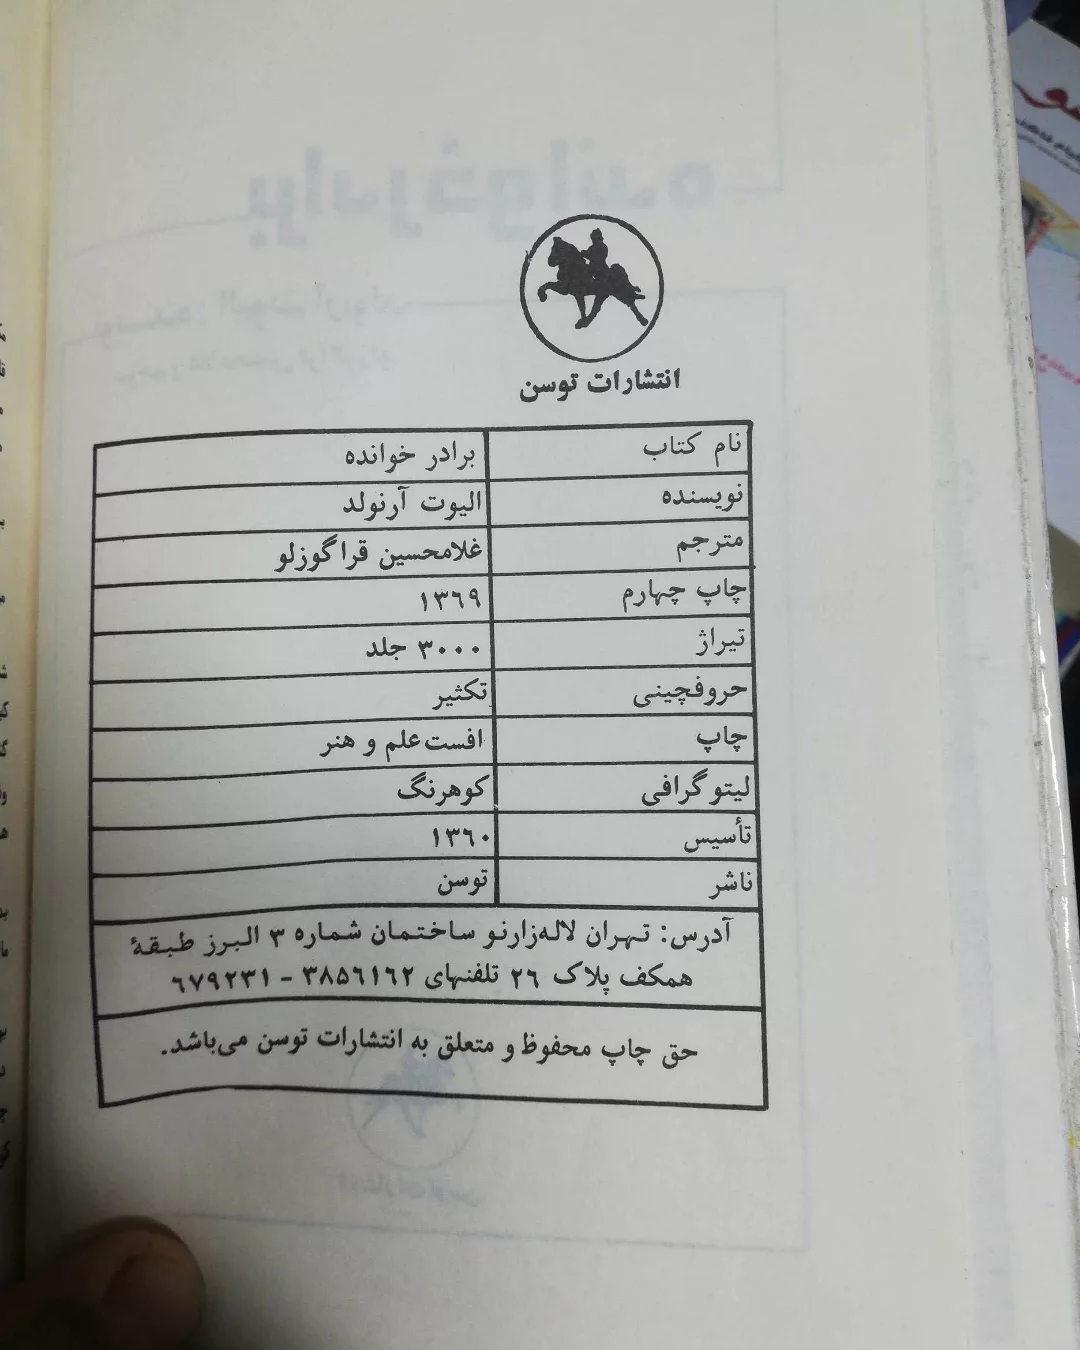 انتشارات توسن
نام کتاب برادر خوانده
نویسنده الیوت آرنولد
مترجم غلامحسین قراگوزلو
چاپ چهارم ۱۳۶۹
تیراژ ۳۰۰۰ جلد
حروفچینی تکثیر
چاپ افست علم و هنر
لیتوگرافی کوهرنگ
تأسیس ۱۳۶۰
ناشر توسن
آدرس: تهران لاله‌زارنو ساختمان شماره ۳ البرز طبقهٔ
همکف پلاک ۲۶ تلفنهای ۳۸۵۶۱۶۲ - ۶۷۹۲۳۱
حق چاپ محفوظ و متعلق به انتشارات توسن می‌باشد.